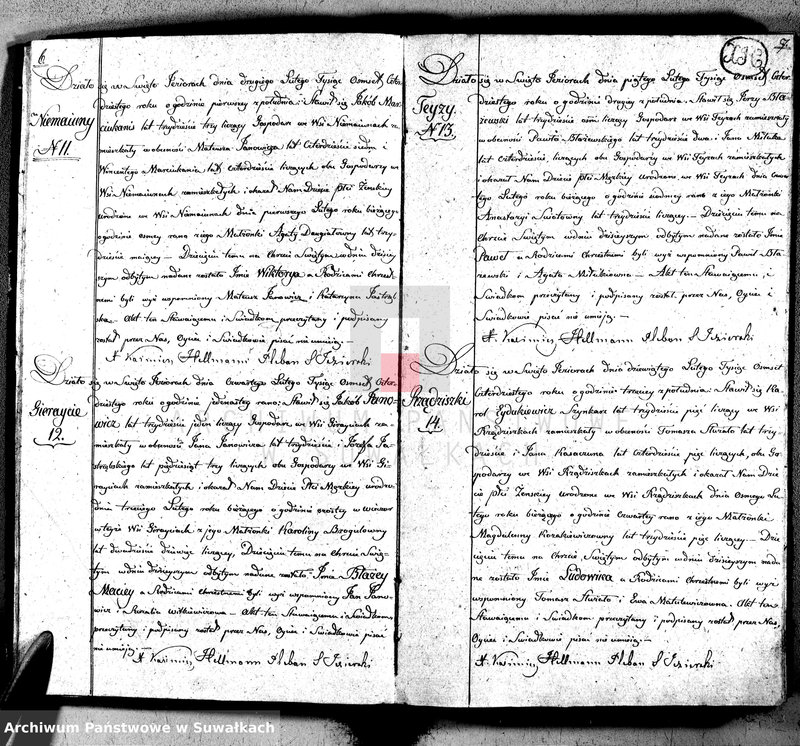 6
Niemaiuny
N 11
Działo się w Święto Jeziorach dnia drugiego Lutego Tysiąc Osmset Czter
dziestego roku o godzinie pierwszy z południa: Stawił się Jakób Mar
ciukanis lat trzydzieście trzy liczący Gospodarz we Wsi Niemaiunach za
mieszkały w obecności Mateusza Janowicza lat Czterdzieście siedm i
Wincentego Marciukania lat Czterdzieście liczących oba Gospodarzy w
Wsi Niemaiunach zamieszkałych i okazał Nam Dziecie płci Żenskiey
urodzone we Wsi Niemaiunach dnia pierwszego Lutego roku bieżącego
o godzinie osmey rano z iego Małżonki Agaty lat trzy
dzieście maiącey — Dziecięciu temu na Chrzcie Świętym w dniu dzisiey
szym odbytym nadane zostało Imie Wiktorya a Rodzicami Chrzest
nemi byli wyż wspomniony Mateusz Janowicz i Katarzyna Jastrzęb
ska. Akt ten Stawaiącemu i Świadkom przeczytany i podpisany
został przez Nas, Oyciec i Swiadkowie pisać nie umieią. —
X Kazimierz Hellmann Pleban S Jeziorski
Gieraycie
12.
Działo się w Święto Jeziorach dnia Czwartego Lutego Tysiąc Osmset Czter
dziestego roku o godzinie jedynastey rano: Stawił się Jakób Jano-
wicz lat trzydzieście jeden liczący Gospodarz we Wsi Gierayciach za
mieszkały w obecności Jana Janowicza lat trzydzieście i Józefa Ja
strzębskiego lat pięćdziesiąt trzy liczących oba Gospodarzy we Wsi Gi
erayciach zamieszkałych i okazał Nam Dziecie Płci Męzkiey urodzo
dnia trzeciego Lutego roku bieżącego o godzinie szostey w wieczor
w teyże Wsi Gierayciach z jego Małżonki Karoliny Brogutowny
lat dwadzieście dziewięc liczącey, Dziecięciu temu na Chrzcie Świę-
tym w dniu dzisieyszym odbytym nadane zostało Imie Błażey
Maciey a Rodzicami Chrzestnemi byli wyż wspomniony Jan Jano
wicz i Rozalia Witkiewiczowa — Akt ten Stawaiącemu i Swiadkom
przeczytany i podpisany został przez Nas, Oyciec i Swiadkowie pisać
nie umieią. —
X Kazimierz Hellmann Pleban S Jeziorski
7
Teyzy
N 13.
Działo się w Święto Jeziorach dnia piątego Lutego Tysiąc Osmset Czter
dziestego roku o godzinie drugiey z południa: Stawił się Jerzy Bła
żewski lat trzydzieście ośm liczący Gospodarz we Wsi zamieszkały
w obecności Pawła Błażewskiego lat trzydzieście dwa i Jana
lat Czterdzieście, liczących oba Gospodarzy we Wsi zamieszkałych
i okazał Nam Dziecie płci Męzkiey Urodzone we Wsi dnia Czwar
tego Lutego roku bieżącego o godzinie siodmey rano z iego Małżonki
Anastazyi lat trzydzieście liczącey — Dziecięciu temu na
Chrzcie Świętym w dniu dzisieyszym odbytym nadane zostało Imie
Paweł a Rodzicami Chrzestnemi byli wyż wspomniony Paweł Bła
zewski i Agata — Akt ten Stawaiącemu i
Swiadkom przeczytany i podpisany został przez Nas, Oyciec i
Swiadkowie pisać nie umieią —
X Kazimierz Hellmann Pleban S Jeziorski
Rządziszki
14.
Działo się w Święto Jeziorach dnia dziewiątego Lutego Tysiąc Osmset
Czterdziestego roku o godzinie trzeciey z południa: Stawił się Ka
rol Eydukiewicz Szynkarz lat trzydzieście pięć liczący we Wsi
Rządziszkach zamieszkały w obecności Tomasza lat trzy
dzieście i Jana lat Czterdzieście pięć liczących, oba Go
spodarzy we Wsi Rządziszkach zamieszkałych i okazał Nam Dzie
cie płci Żenskiey Urodzone we Wsi Rządziszkach dnia Osmego Lu
tego roku bieżącego o godzinie Czwartey rano z iego Małżonki
Magdaleny Kozakiewiczowny lat trzydzieście pięć liczącey — Dzie
cięciu temu na Chrzcie Świętym odbytym w dniu dzisieyszym nada
ne zostało Imie Ludowika a Rodzicami Chrzestnemi byli wyż
wspomniony Tomasz i Ewa — Akt ten
Stawaiącemu i Swiadkom przeczytany i podpisany został przez Nas,
Oyciec i Swiadkowie pisać nie umieią. —
X Kazimierz Hellmann Pleban S Jeziorski
ARCHIWUM PAŃSTWOWE
W SUWAŁKACH
Archiwum Państwowe w Suwałkach